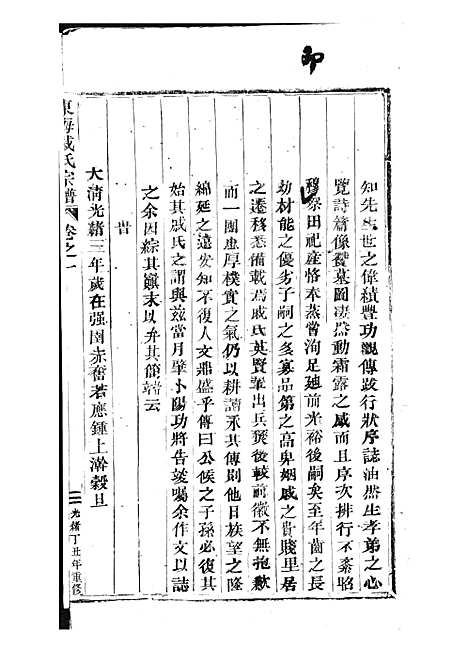 印
知先生世之偉積豐功觀傳跋行狀序誌油然生孝弟之心
覽詩篇像贊墓圖淒然動霜露之感而且序次排行不紊昭
穆祭田祀產恪奉蒸嘗洵足廸前光裕後嗣矣至年齒之長
幼材能之優劣子嗣之多寡品第之高卑姻戚之貴賤里居
之遷移悉備載焉戚氏英賢輩出兵燹後較前徽不無抱歉
而一團忠厚樸實之氣仍以耕讀承其傳則他日族望之隆
綿延之遠安知不復人文鼎盛乎傳曰公侯之子孫必復其
始其戚氏之謂與茲當月肇小陽功將告竣囑余作文以誌
之余因綜其顛末以弁其簡端云
旹
大清光緒三年歲在强圉赤奮若應鍾上澣穀旦
東海戚氏宗譜
卷之一
二
光緒丁丑年重修